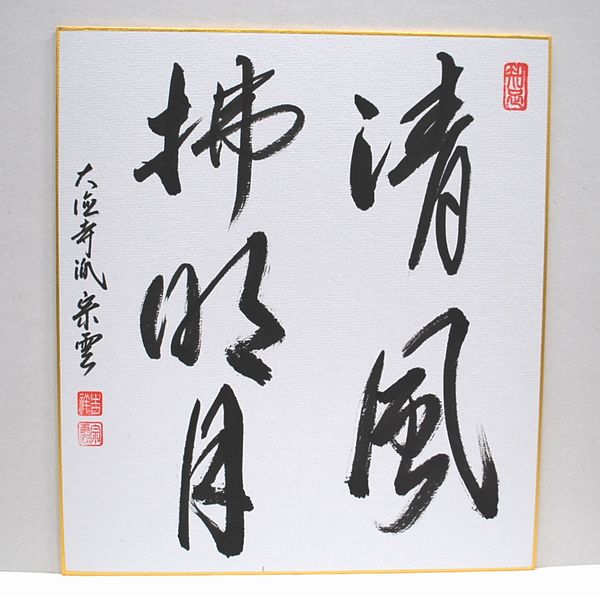 清風
拂明月
大徳寺派宗雲
知足